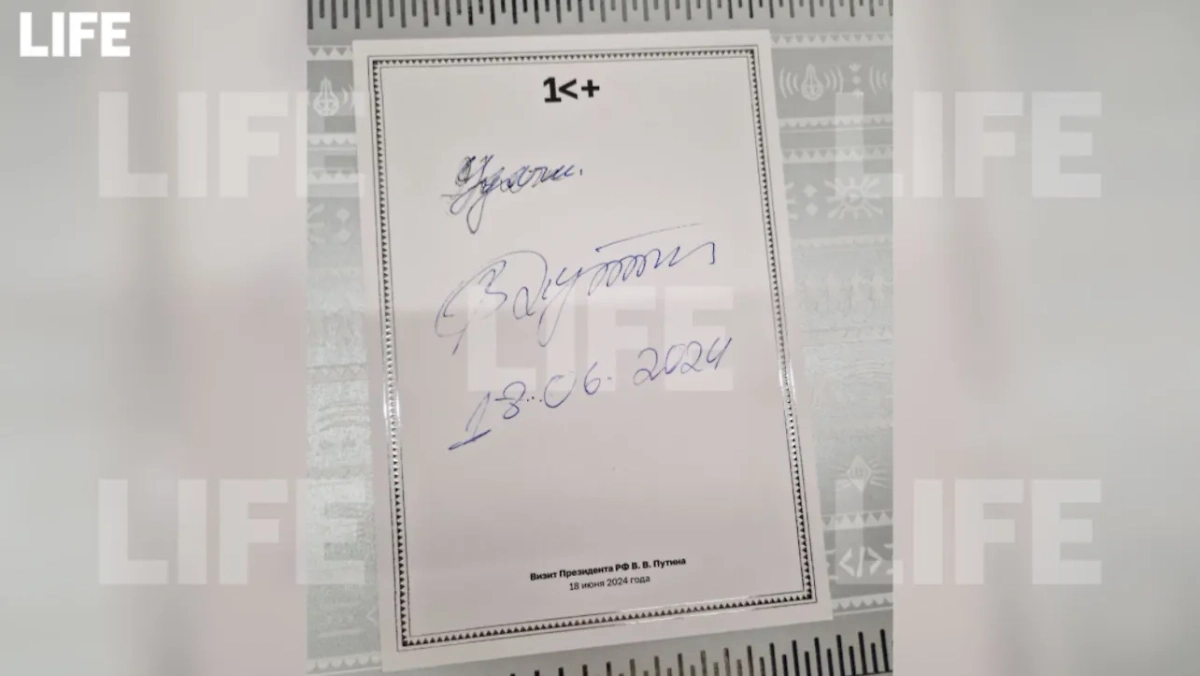 LIFE
1<+
Удачи.
ВПутин
18.06.2024
Визит Президента РФ В. В. Путина
18 июня 2024 года
LIFE
LIFE
LIFE
LIFE
LIFE